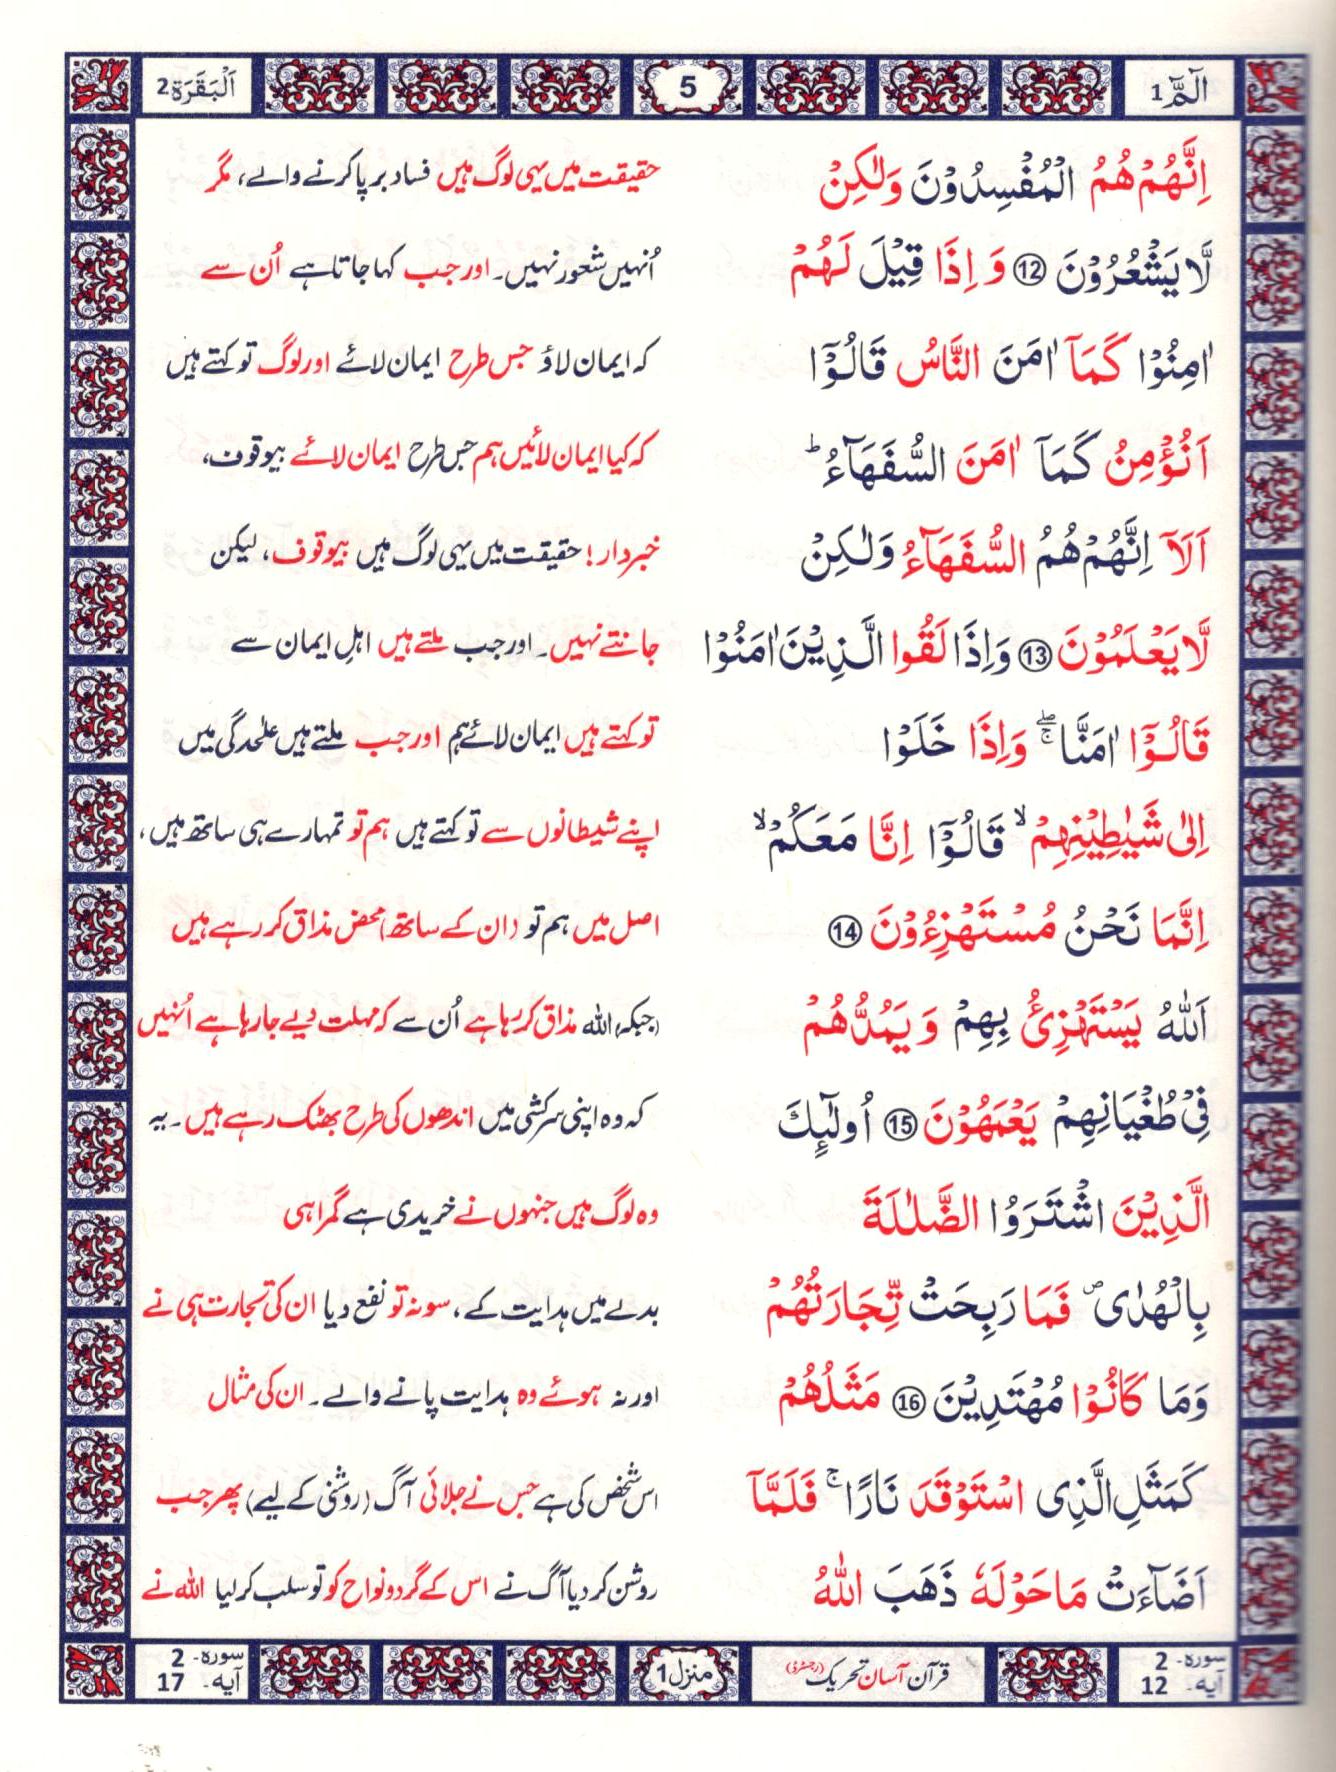 الٓمّٓ 1
5
اَلْبَقَرَة 2
اِنَّهُمْ هُمُ الْمُفْسِدُوْنَ وَلٰكِنْ
حقیقت میں یہی لوگ ہیں فساد برپا کرنے والے، مگر
لَّا يَشْعُرُوْنَ ⑫ وَ اِذَا قِيْلَ لَهُمْ
اُنہیں شعور نہیں۔ اور جب کہا جاتا ہے اُن سے
اٰمِنُوْا كَمَآ اٰمَنَ النَّاسُ قَالُوْٓا
کہ ایمان لاؤ جس طرح ایمان لائے اور لوگ تو کہتے ہیں
اَنُؤْمِنُ كَمَآ اٰمَنَ السُّفَهَآءُ ؕ
کہ کیا ایمان لائیں ہم جس طرح ایمان لائے بیوقوف،
اَلَآ اِنَّهُمْ هُمُ السُّفَهَآءُ وَلٰكِنْ
خبردار! حقیقت میں یہی لوگ ہیں بیوقوف، لیکن
لَّا يَعْلَمُوْنَ ⑬ وَاِذَا لَقُوا الَّذِيْنَ اٰمَنُوْا
جانتے نہیں۔ اور جب ملتے ہیں اہلِ ایمان سے
قَالُوْٓا اٰمَنَّا ۖۚ وَاِذَا خَلَوْا
تو کہتے ہیں ایمان لائے ہم اور جب ملتے ہیں علٰحدگی میں
اِلٰى شَيٰطِيْنِهِمْ ۙ قَالُوْٓا اِنَّا مَعَكُمْ ۙ
اپنے شیطانوں سے تو کہتے ہیں ہم تو تمہارے ہی ساتھ ہیں،
اِنَّمَا نَحْنُ مُسْتَهْزِءُوْنَ ⑭
اصل میں ہم تو (ان کے ساتھ) محض مذاق کر رہے ہیں
اَللّٰهُ يَسْتَهْزِئُ بِهِمْ وَ يَمُدُّهُمْ
(جبکہ) اللہ مذاق کر رہا ہے اُن سے کہ مہلت دیے جا رہا ہے اُنہیں
فِىْ طُغْيَانِهِمْ يَعْمَهُوْنَ ⑮ اُولٰٓئِكَ
کہ وہ اپنی سرکشی میں اندھوں کی طرح بھٹک رہے ہیں۔ یہ
الَّذِيْنَ اشْتَرَوُا الضَّلٰلَةَ
وہ لوگ ہیں جنہوں نے خریدی ہے گمراہی
بِالْهُدٰى ۪ فَمَا رَبِحَتْ تِّجَارَتُهُمْ
بدلے میں ہدایت کے، سو نہ تو نفع دیا ان کی تجارت ہی نے
وَمَا كَانُوْا مُهْتَدِيْنَ ⑯ مَثَلُهُمْ
اور نہ ہوئے وہ ہدایت پانے والے۔ ان کی مثال
كَمَثَلِ الَّذِى اسْتَوْقَدَ نَارًا ۚ فَلَمَّآ
اس شخص کی ہے جس نے جلائی آگ (روشنی کے لیے) پھر جب
اَضَآءَتْ مَا حَوْلَهٗ ذَهَبَ اللّٰهُ
روشن کر دیا آگ نے اس کے گردونواح کو تو سلب کر لیا اللہ نے
سورہ۔ 2
آیہ۔ 12
قرآن آسان تحریک (رجسٹرڈ)
منزل 1
سورہ۔ 2
آیہ۔ 17